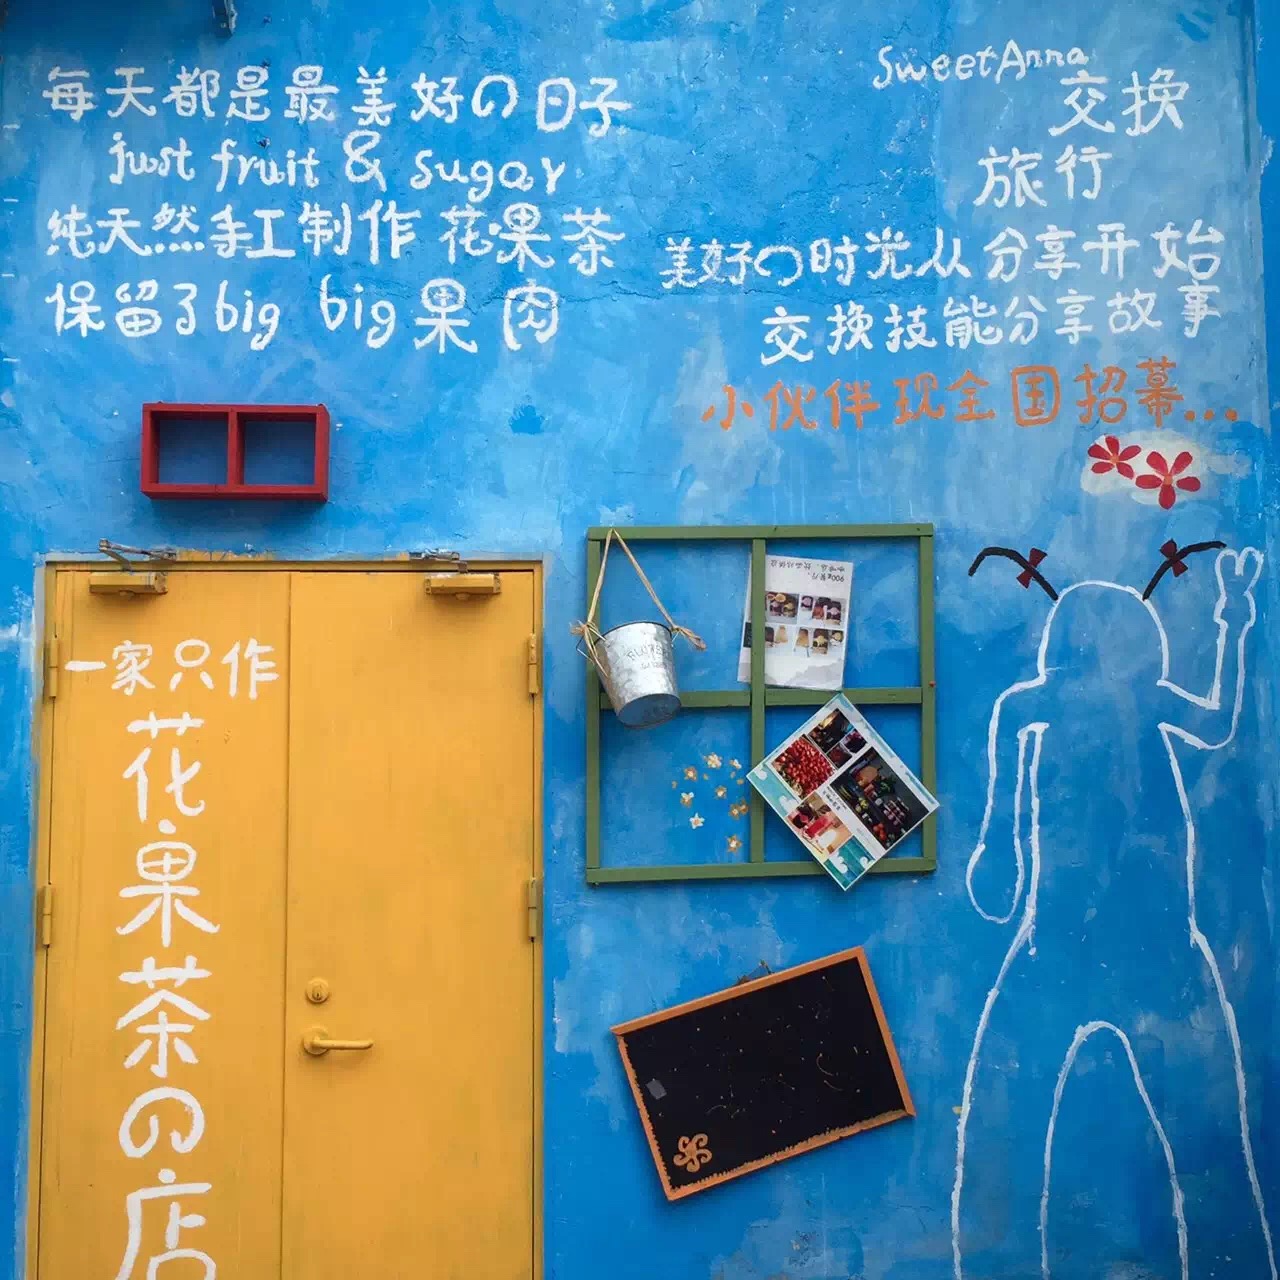 每天都是最美好の日子
just fruit & sugar
纯天然手工制作 花果茶
保留了big big果肉
SweetAnna
交换
旅行
美好の时光从分享开始
交换技能分享故事
小伙伴现全国招幕...
一家只作
花果茶の店